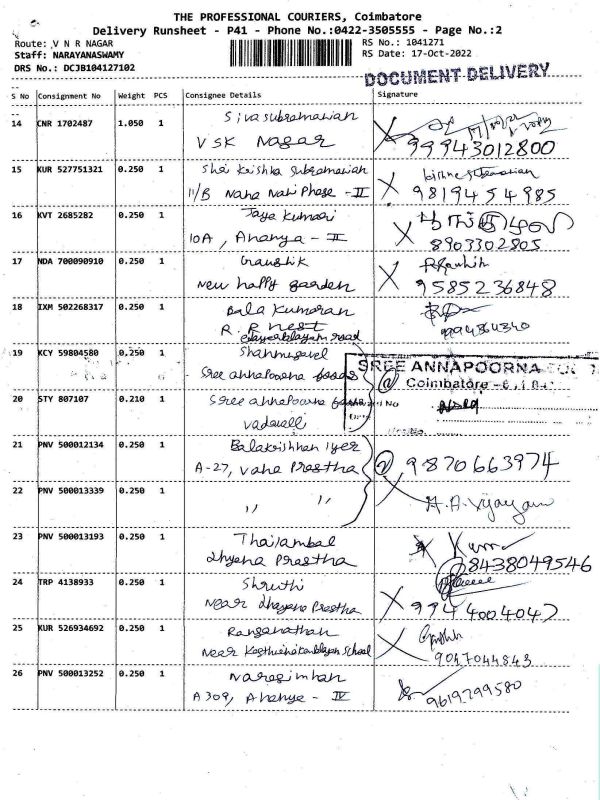 THE PROFESSIONAL COURIERS, Coimbatore
Delivery Runsheet - P41 - Phone No.:0422-3505555 - Page No.:2
Route: V N R NAGAR RS No.: 1041271
Staff: NARAYANASWAMY RS Date: 17-Oct-2022
DRS No.: DCJB104127102
DOCUMENT DELIVERY
S No Consignment No Weight PCS Consignee Details Signature
14 CNR 1702487 1.050 1 Sivasubramanian
VSK Nagar 99943012800
15 KUR 527751321 0.250 1 Shri Krishna Subramanian
11/B Nana Nani Phase - II 9819454985
16 KVT 2685282 0.250 1 Jaya Kumari
10A, Ananya - II 8903302805
17 NDA 700090910 0.250 1 Gaushik
New happy garden 9585236848
18 IXM 502268317 0.250 1 Bala Kumaran
R. R nest 9994864340
road
19 KCY 59804580 0.250 1 Shanmugavel
Sree annapoorna foods
SREE ANNAPOORNA
Coimbatore
20 STY 807107 0.210 1 Sree annapoorna
vadavalli
21 PNV 500012134 0.250 1 Balakrishnan iyer
A-27, Vana Prastha 9870663974
22 PNV 500013339 0.250 1 ,, ,,
A.A.Vijayam
23 PNV 500013193 0.250 1 Thailambal
dhyana Prastha 8438049546
24 TRP 4138933 0.250 1 Shruthi
Near dhayana Prastha 9944004047
25 KUR 526934692 0.250 1 Ranganathan
Near school 9047044843
26 PNV 500013252 0.250 1 Narasimhan
A309, Ananya - IV 9619799580